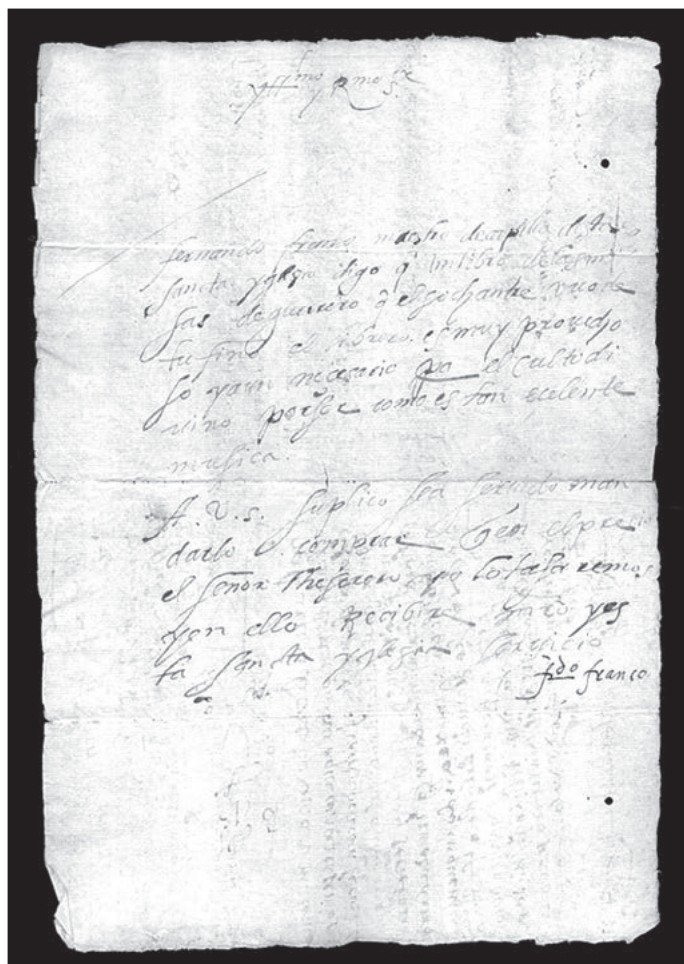 Yllmo y Rmo sr
fernando franco maestro de capilla desta
sancta yglesia digo q un libro de las mi
sas de guerrero q el sochantre
el librero es muy provecho
so y aun necesario pa el culto di
vino por ser como es tan ecelente
musica.
A. V. s. suplico sea servido man
darlo comprar q en el precio
el señor Thesorero y yo lo tasaremos
y en ello Recibire y es
ta sancta yglesia servicio
fdo franco